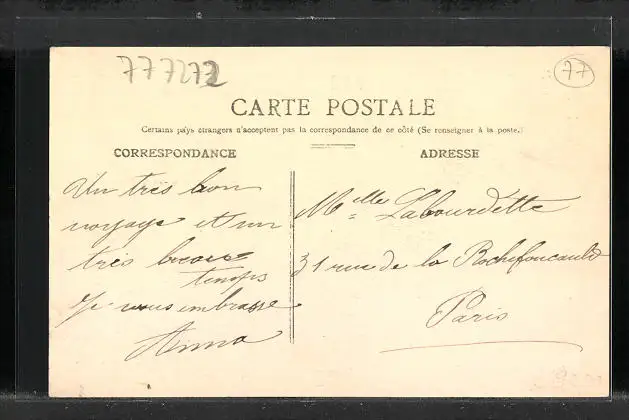 777272
77
CARTE POSTALE
Certains pays étrangers n'acceptent pas la correspondance de ce côté (Se renseigner à la poste.)
CORRESPONDANCE
Un très bon
voyage et un
très beau
temps
Je vous embrasse
Anna
ADRESSE
Melle Labourdette
31 rue de la Rochefoucauld
Paris